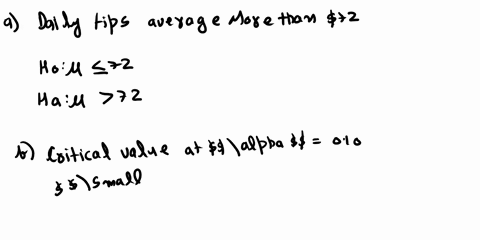 a) Daily tips average more than $72
Ho: μ ≤72
Ha: μ >72
b) Critical value at $$\alpha $$ = 0.10
$$\small